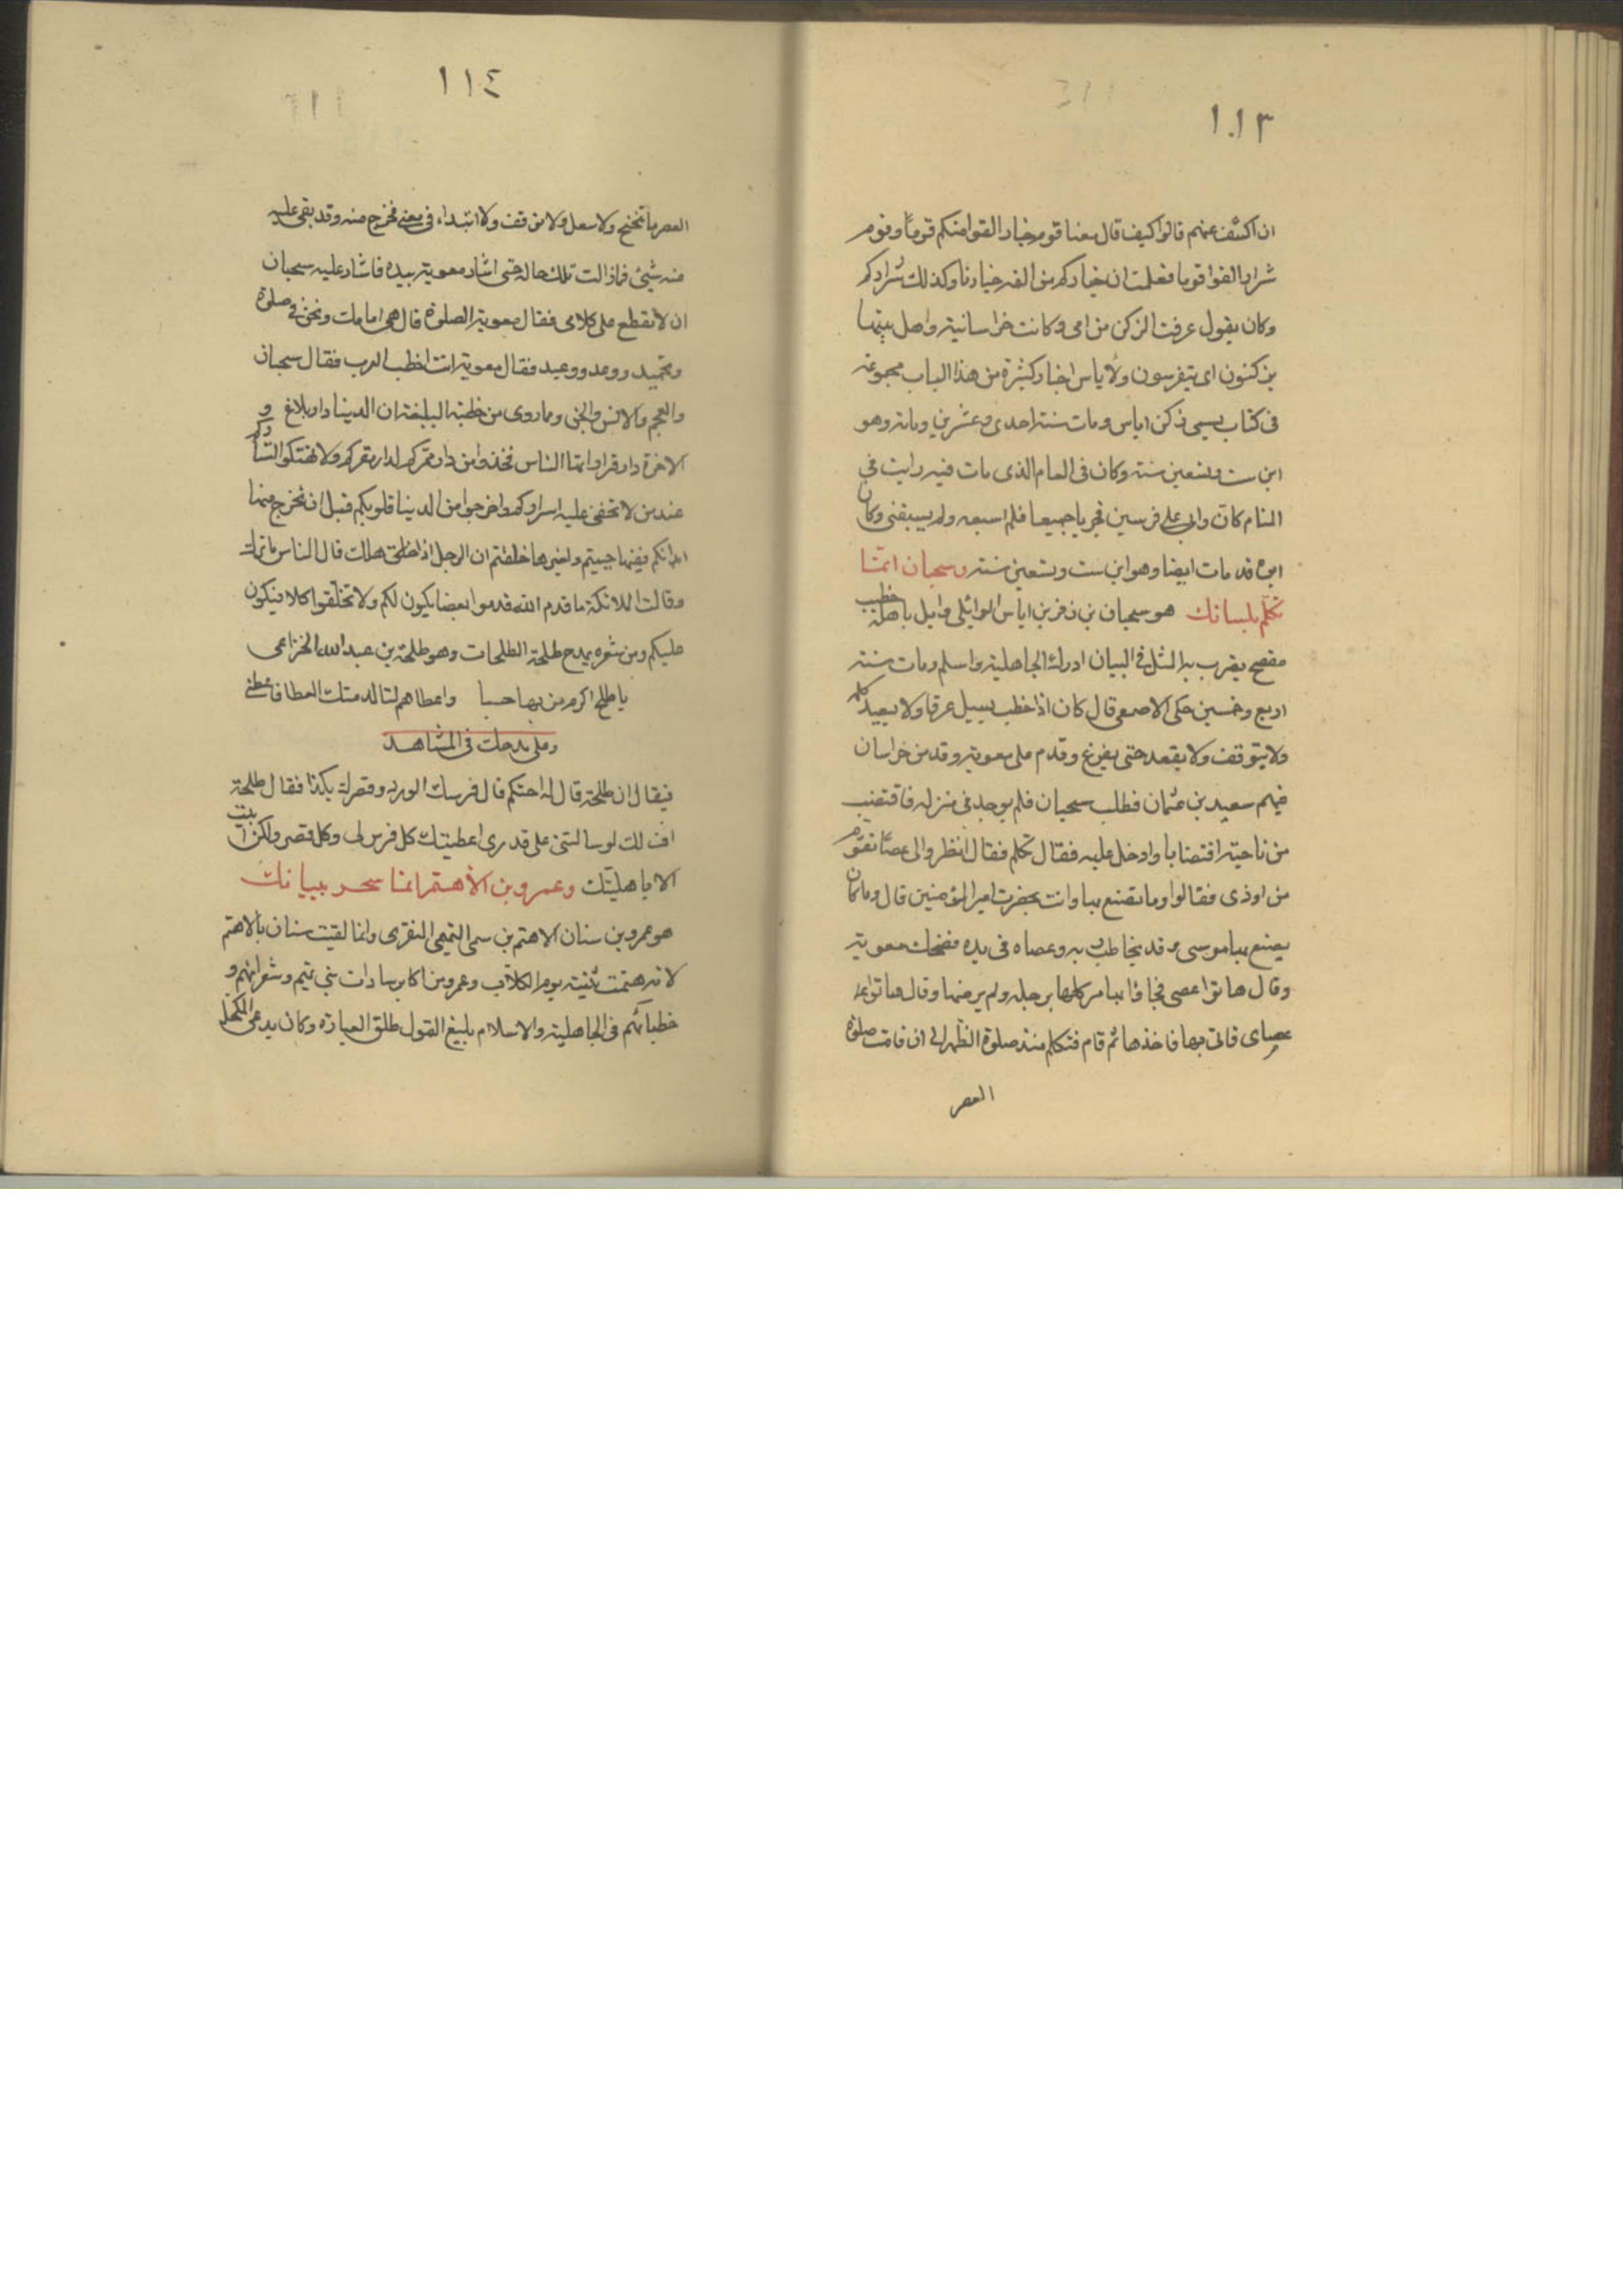 ١١٣
ان اكشف عنهم قالوا كيف قال معنا قوم خيار القوا منكم قوما وقوم
شرار القوا قوما فعلمت ان خياركم من الفه خيارنا وكذلك شراركم
وكان يقول عرفت الزكن من امى وكانت خراسانية واهل بيتها
يزكنون اى يتفرسون ولاياس اخبار كثيرة من هذا الباب مجموعة
فى كتاب يسمى زكن اياس ومات سنة احدى وعشرين ومايه وهو
ابن ست وتسعين سنة وكان فى العام الذى مات فيه رايت فى
المنام كانى وابى على فرسين فجريا جميعا فلم اسبقه ولم يسبقنى وكان
ابوه قد مات ايضا وهو ابن ست وتسعين سنة وسحبان انما
تكلم بلسانك هو سحبان بن زفر بن اياس الوائلى وايل باهلة خطيب
مفصح يضرب به المثل فى البيان ادرك الجاهلية واسلم ومات سنة
اربع وخمسين حكى الاصمعى قال كان اذا خطب يسيل عرقا ولا يعيد كلمة
ولا يتوقف ولا يقعد حتى يفرغ وقدم على معوية وقد من خراسان
فيهم سعيد بن عثمان فطلب سحبان فلم يوجد فى منزله فاقتضب
من ناحية اقتضابا وادخل عليه فقال تكلم فقال انظروا لى عصا تقوم
من اودى فقالوا وما تصنع بها وانت بحضرت امير المؤمنين قال وما كان
يصنع بها موسى وقد يخاطب به وعصاه فى يده فضحك معوية
وقال هاتوا عصى فجاؤا بها مركلها برجله ولم يرضها وقال هاتوا
عصاى فاتى بها فاخذها ثم قام فتكلم منذ صلوة الظهر الى ان قامت صلوة
العصر
١١٤
العصر ما تنحنح ولا سعل ولا توقف ولا ابتداء فى معنى فخرج منه وقد بقى عليه
منه شيئ فما زالت تلك حاله حتى اشار معوية بيده فاشار عليه سحبان
ان لا تقطع على كلامى فقال معوية الصلوة قال هى امامك ونحن فى صلوة
وتحميد ووعد ووعيد فقال معوية انت اخطب العرب فقال سحبان
والعجم والانس والجن ومما روى من خطبه البليغة ان الدينا دار بلاغ و
الاخرة دار قرار ايها الناس فخذوا من دار ممركم لدار مقركم ولا تهتكوا استاركم
عند من لا تخفى عليه اسراركم واخرجوا من الدينا قلوبكم قبل ان تخرج منها
ابدانكم ففيها حييتم ولغيرها خلقتم ان الرجل اذا هلك قال الناس ما ترك
وقالت الملائكة ما قدم الله قدموا بعضا يكون لكم ولا تخلفوا كلا فيكون
عليكم ومن شعره يمدح طلحة الطلحات وهو طلحة بن عبد الله الخزاعى
يا طلح اكرم من بها حسبا واعطاهم لتالد منك العطا فاعطنى
وعلى مدحك فى المشاهد
فيقال ان طلحة قال له احتكم قال فرسك الورد وقصرك بكذا فقال طلحة
اف لك لو سالتنى على قدرى اعطيتك كل فرس لى وكل قصر ولكن ابيت
الا باهليتك وعمرو بن الأهتم انما سحر ببيانك
هو عمرو بن سنان الاهتم بن سمى التميمى المنقرى وانما لقبت سنان بالاهتم
لانه هتمت ثنيته يوم الكلاب وعمرو من اكابر سادات بنى تميم وشعرائهم و
خطبائهم فى الجاهلية والاسلام بليغ القول طلق العبارة وكان يدعى المكحل